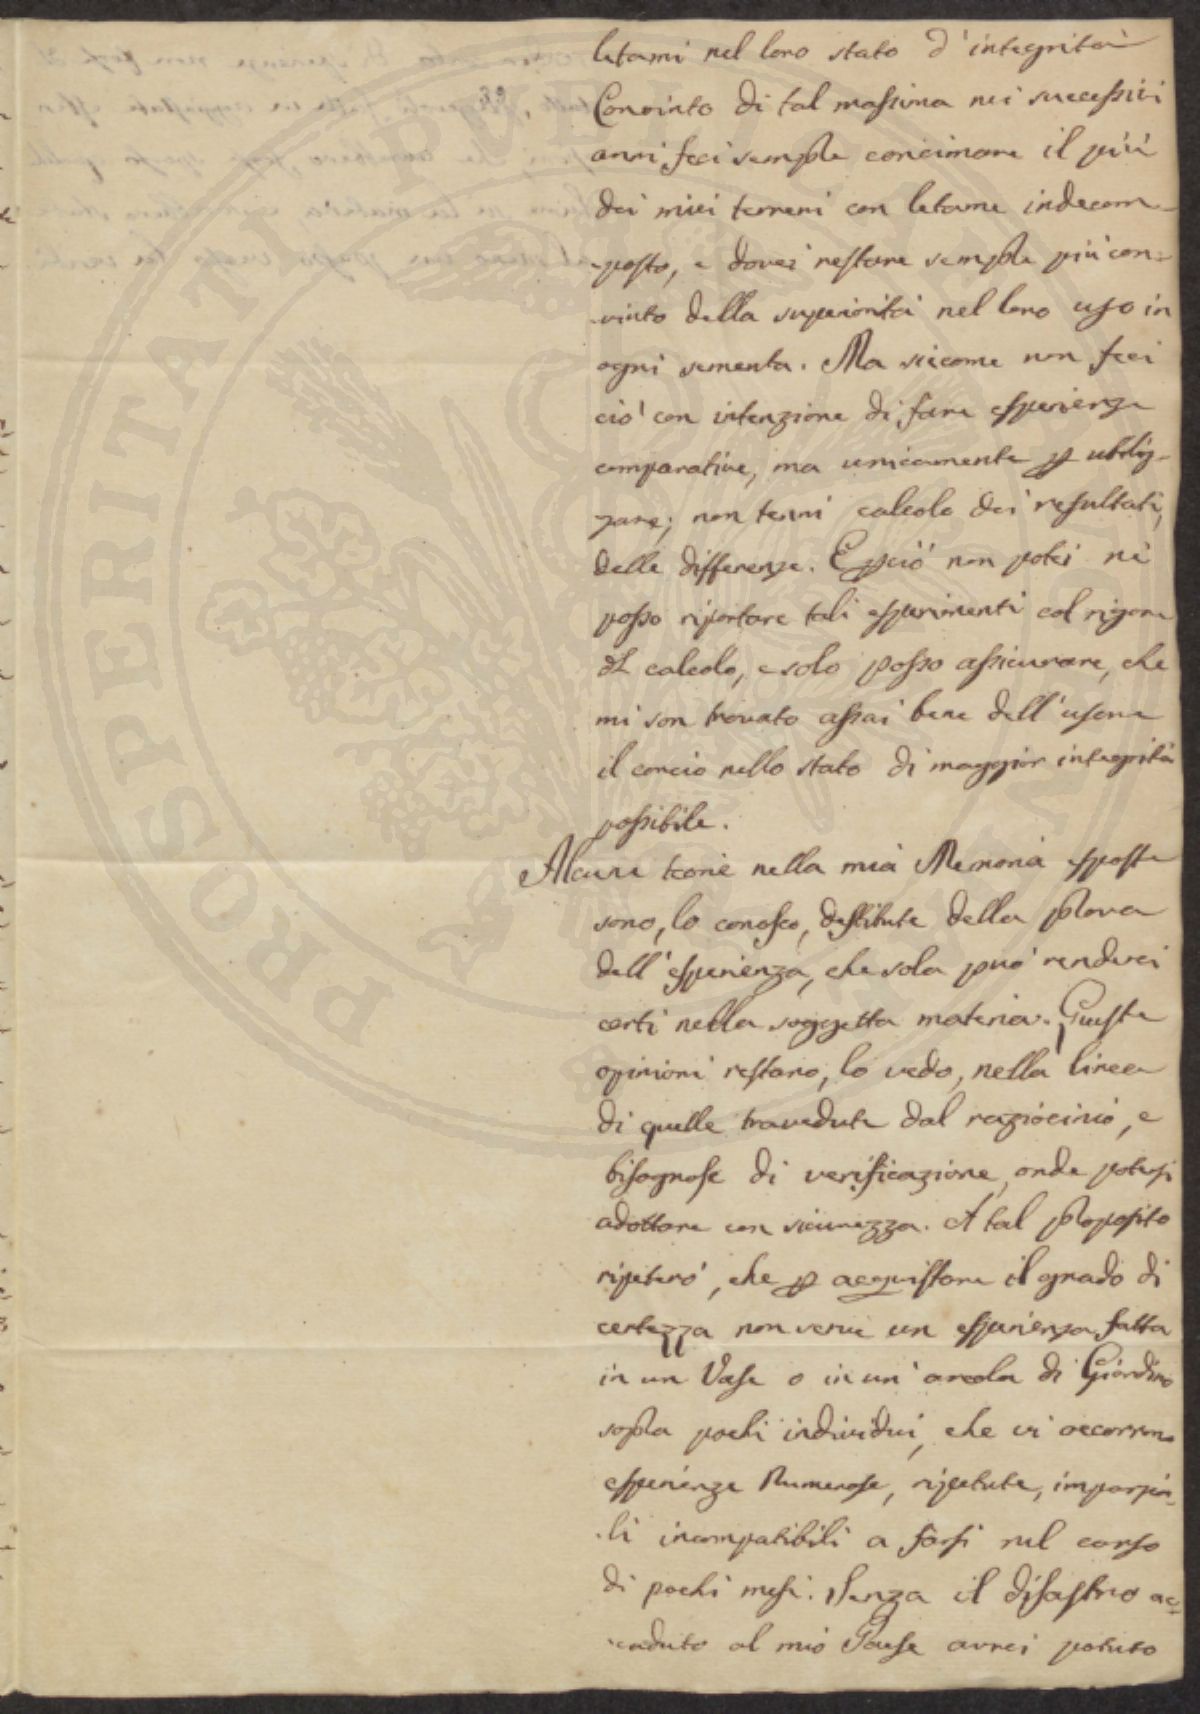 letami nel loro stato d'integrità
Convinto di tal massima nei successivi
anni feci sempre concimare il più
dei miei terreni con letame indecom-
posto, e dovei restare sempre più con-
vinto della superiorità nel loro uso in
ogni sementa. Ma siccome non feci
ciò con intenzione di fare esperienze
comparative, ma unicamente p utiliz-
zare; non tenni calcolo dei resultati,
delle differenze. E pciò non potei nè
posso riportare tali esperimenti col rigore
di calcolo, e solo posso assicurare, che
mi son trovato assai bene dell'usare
il concio nello stato di maggior integrità
possibile.
Alcune teorie nella mia Memoria esposte
sono, lo conosco, destitute della prova
dell'esperienza, che sola può renderci
certi nella soggetta materia. Queste
opinioni restano, lo vedo, nella linea
di quelle travedute dal raziocinio, e
bisognose di verificazione, onde potersi
adottare con sicurezza. A tal proposito
ripeterò, che p acquistare il grado di
certezza non serve un esperienza fatta
in un Vase o in un'areola di Giardino
sopra pochi individui, che vi occorrono
esperienze Numerose, ripetute,
incompatibili a farsi nel corso
di pochi mesi. Senza il disastro ac-
caduto al mio Paese avrei potuto
PROSPERITATI PUBLICAE